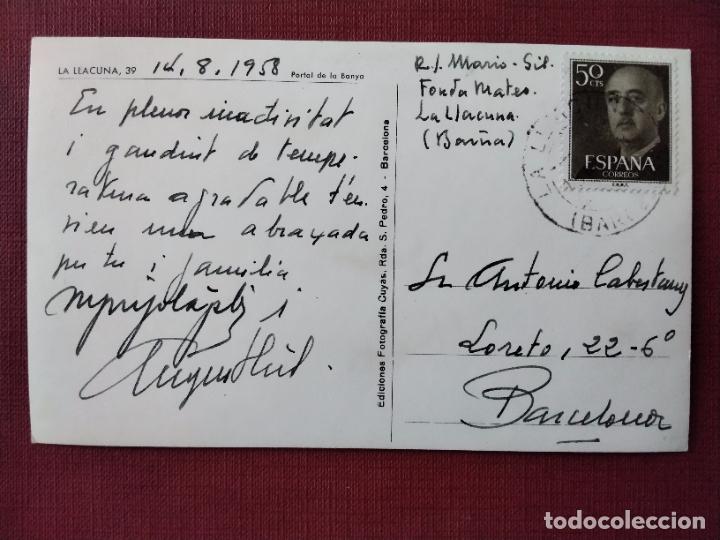 LA LLACUNA, 39
14. 8. 1958
Portal de la Banya
En plenor inactivitat
i gaudint de tempe-
ratura agradable t'en-
vien una abraçada
per tu i familia
i
Ediciones Fotografía Cuyas. Rda. S. Pedro, 4 - Barcelona
R/. Mario-Gil.
Fonda Mateo.
La Llacuna.
(Barna)
50 CTS
ESPAÑA
CORREOS
LA
(BARC
Sr. Antonio Cabestany
Loreto, 22-6º
Barcelona
todocoleccion
todocoleccion.net